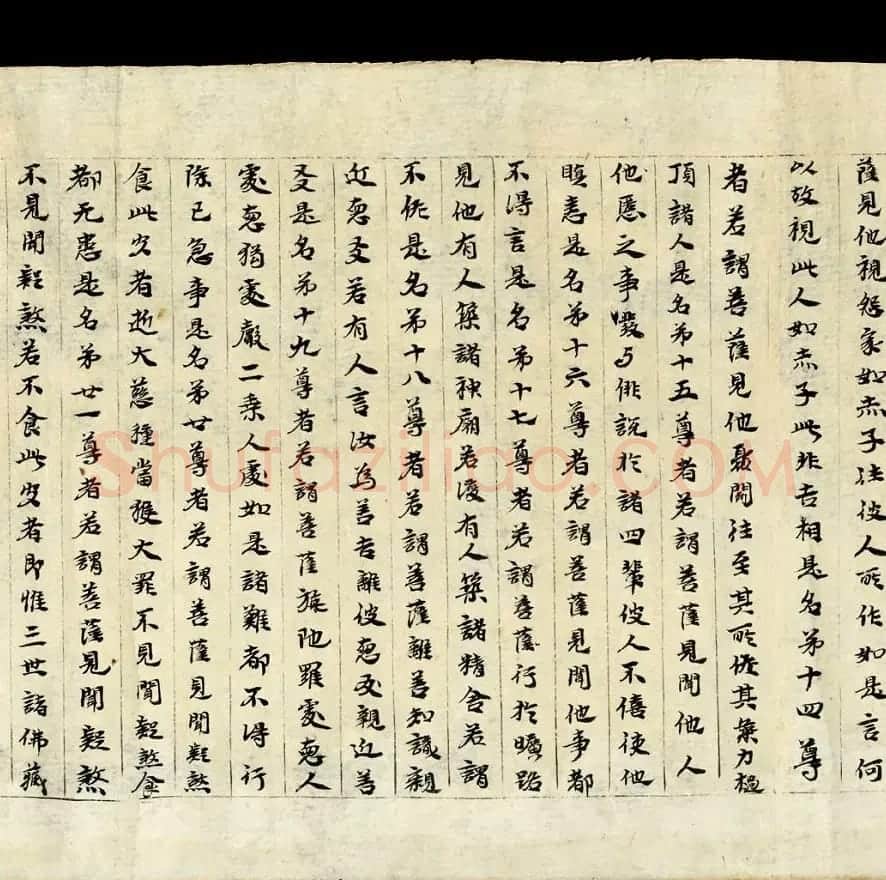 薩見他視怨家如赤子往彼人所作如是言何
以故視此人如赤子此非吉相是名第十四尊
者若謂菩薩見他鬪往至其所從其氣力
頂諸人是名第十五尊者若謂菩薩見聞他人
他惡之事與俳說於諸四輩彼人不僖使他
瞋恚是名第十六尊者若謂菩薩見聞他事都
不得言是名第十七尊者若謂菩薩行於曠路
見他有人築諸神廟若復有人築諸精舍若謂
不作是名第十八尊者若謂菩薩離善知識親
近惡友若有人言汝為善吉離彼惡友親近善
友是名第十九尊者若謂菩薩旃陀羅處惡人
處惡狗處嚴二乘人處如是諸難都不得行
除已急事是名第廿尊者若謂菩薩見聞疑煞
食此宍者逝大慈種當獲大罪不見聞疑煞食
都无患是名第廿一尊者若謂菩薩見聞疑煞
不見聞疑煞若不食此宍者即惟三世諸佛藏
Shufaziliao.COM